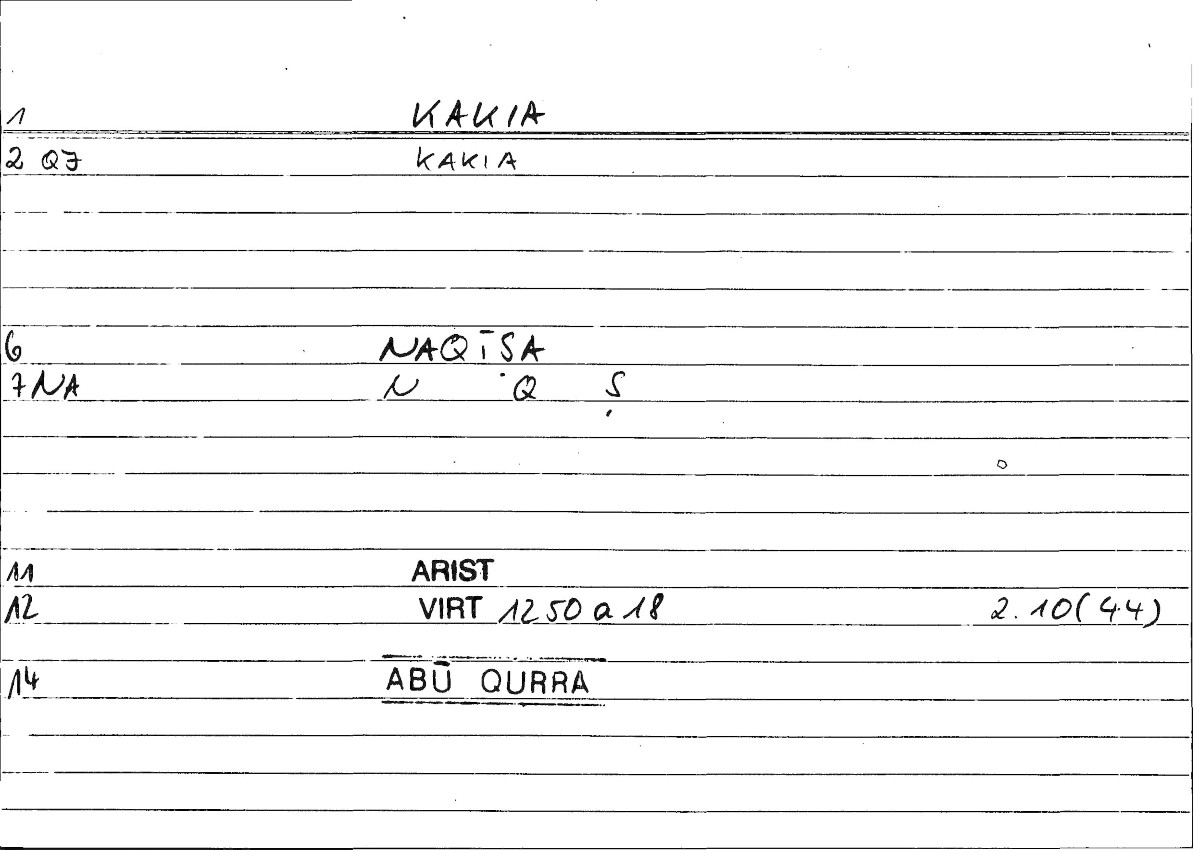 1 KAKIA
2 QJ KAKIA
6 NAQĪSA
7 NA N Q Ṣ
11 ARIST
12 VIRT 1250 a 18 2.10(44)
14 ABŪ QURRA